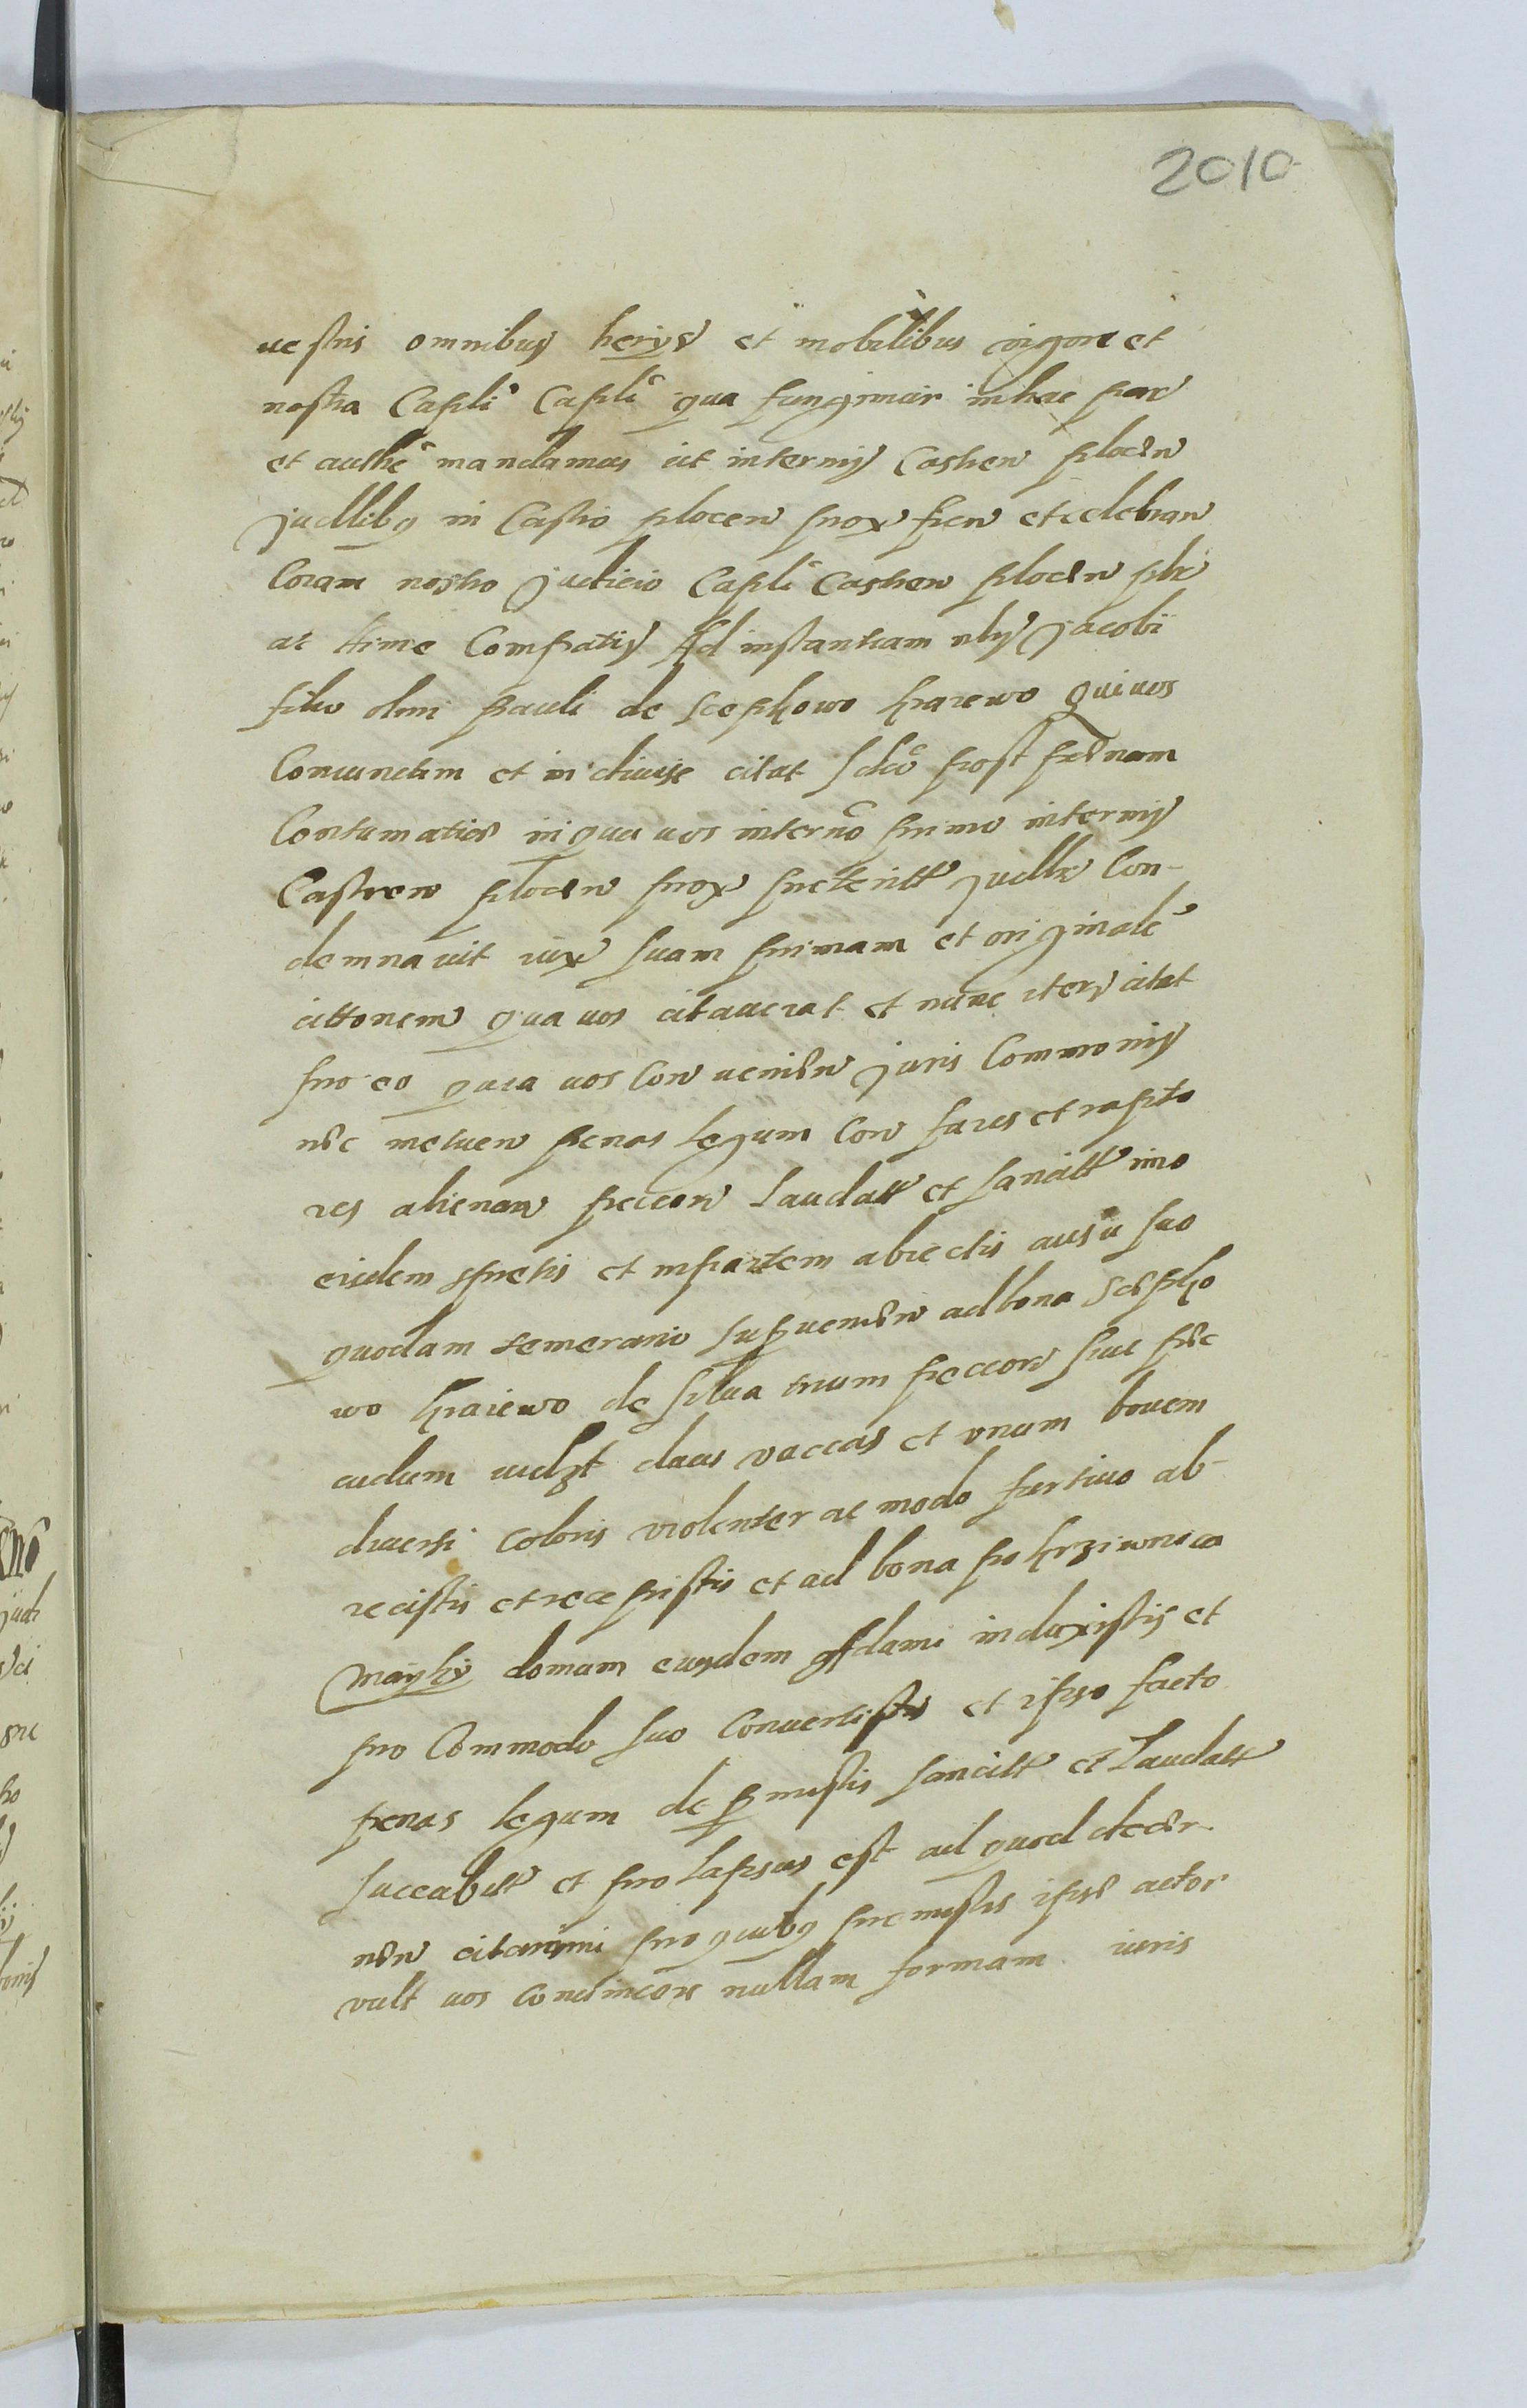 2010
uestris omnibus herijs et mobilibus vigore et
nostra Capli Capli qua fungimur in hac par
et authe mandamus ut in terminis Castren plocen
judllibq in Castro plocen prox fien et celebran
Coram nostro judicio Capli Castren plocen
ac time Compatis Ad instantiam nlis jacobi
filio olim pauli de scepkowo krarewo qui uos
Coniunctim et in diuise citat sdo post primam
Contumatio in qua uos in terno primo interminis
Castren plocen prox preteritt judllr Con-
demnauit iux suam primam et originale
cittonem qua uos citauerat et nunc iter citat
pro eo quia uos Con uenien juris Commonis
nec metuen penas legum Con fures et rapto
res alienar peccor laudatt et sancitt imo
eisdem spretis et in partem abiectis ausu suo
quodam temerario supuenien ad bona Scepko
wo kraiewo de silua trium peccor siue pec
cudum uidzt duas vaccas et vnum bouem
diuersi coloris violenter ac modo furtiuo ab-
recistis et recepistis et ad bona pokrziwnica
domum eiusdem induxistis et
pro Commodo suo Conuertistis et ipso facto
penas legum de pmissis sancitt et Laudatt
succubuitt et pro lapsus est ad quod decer
nen citamini pro quibq premissis ipse actor
vult uos Conuincere nullam formam iuris